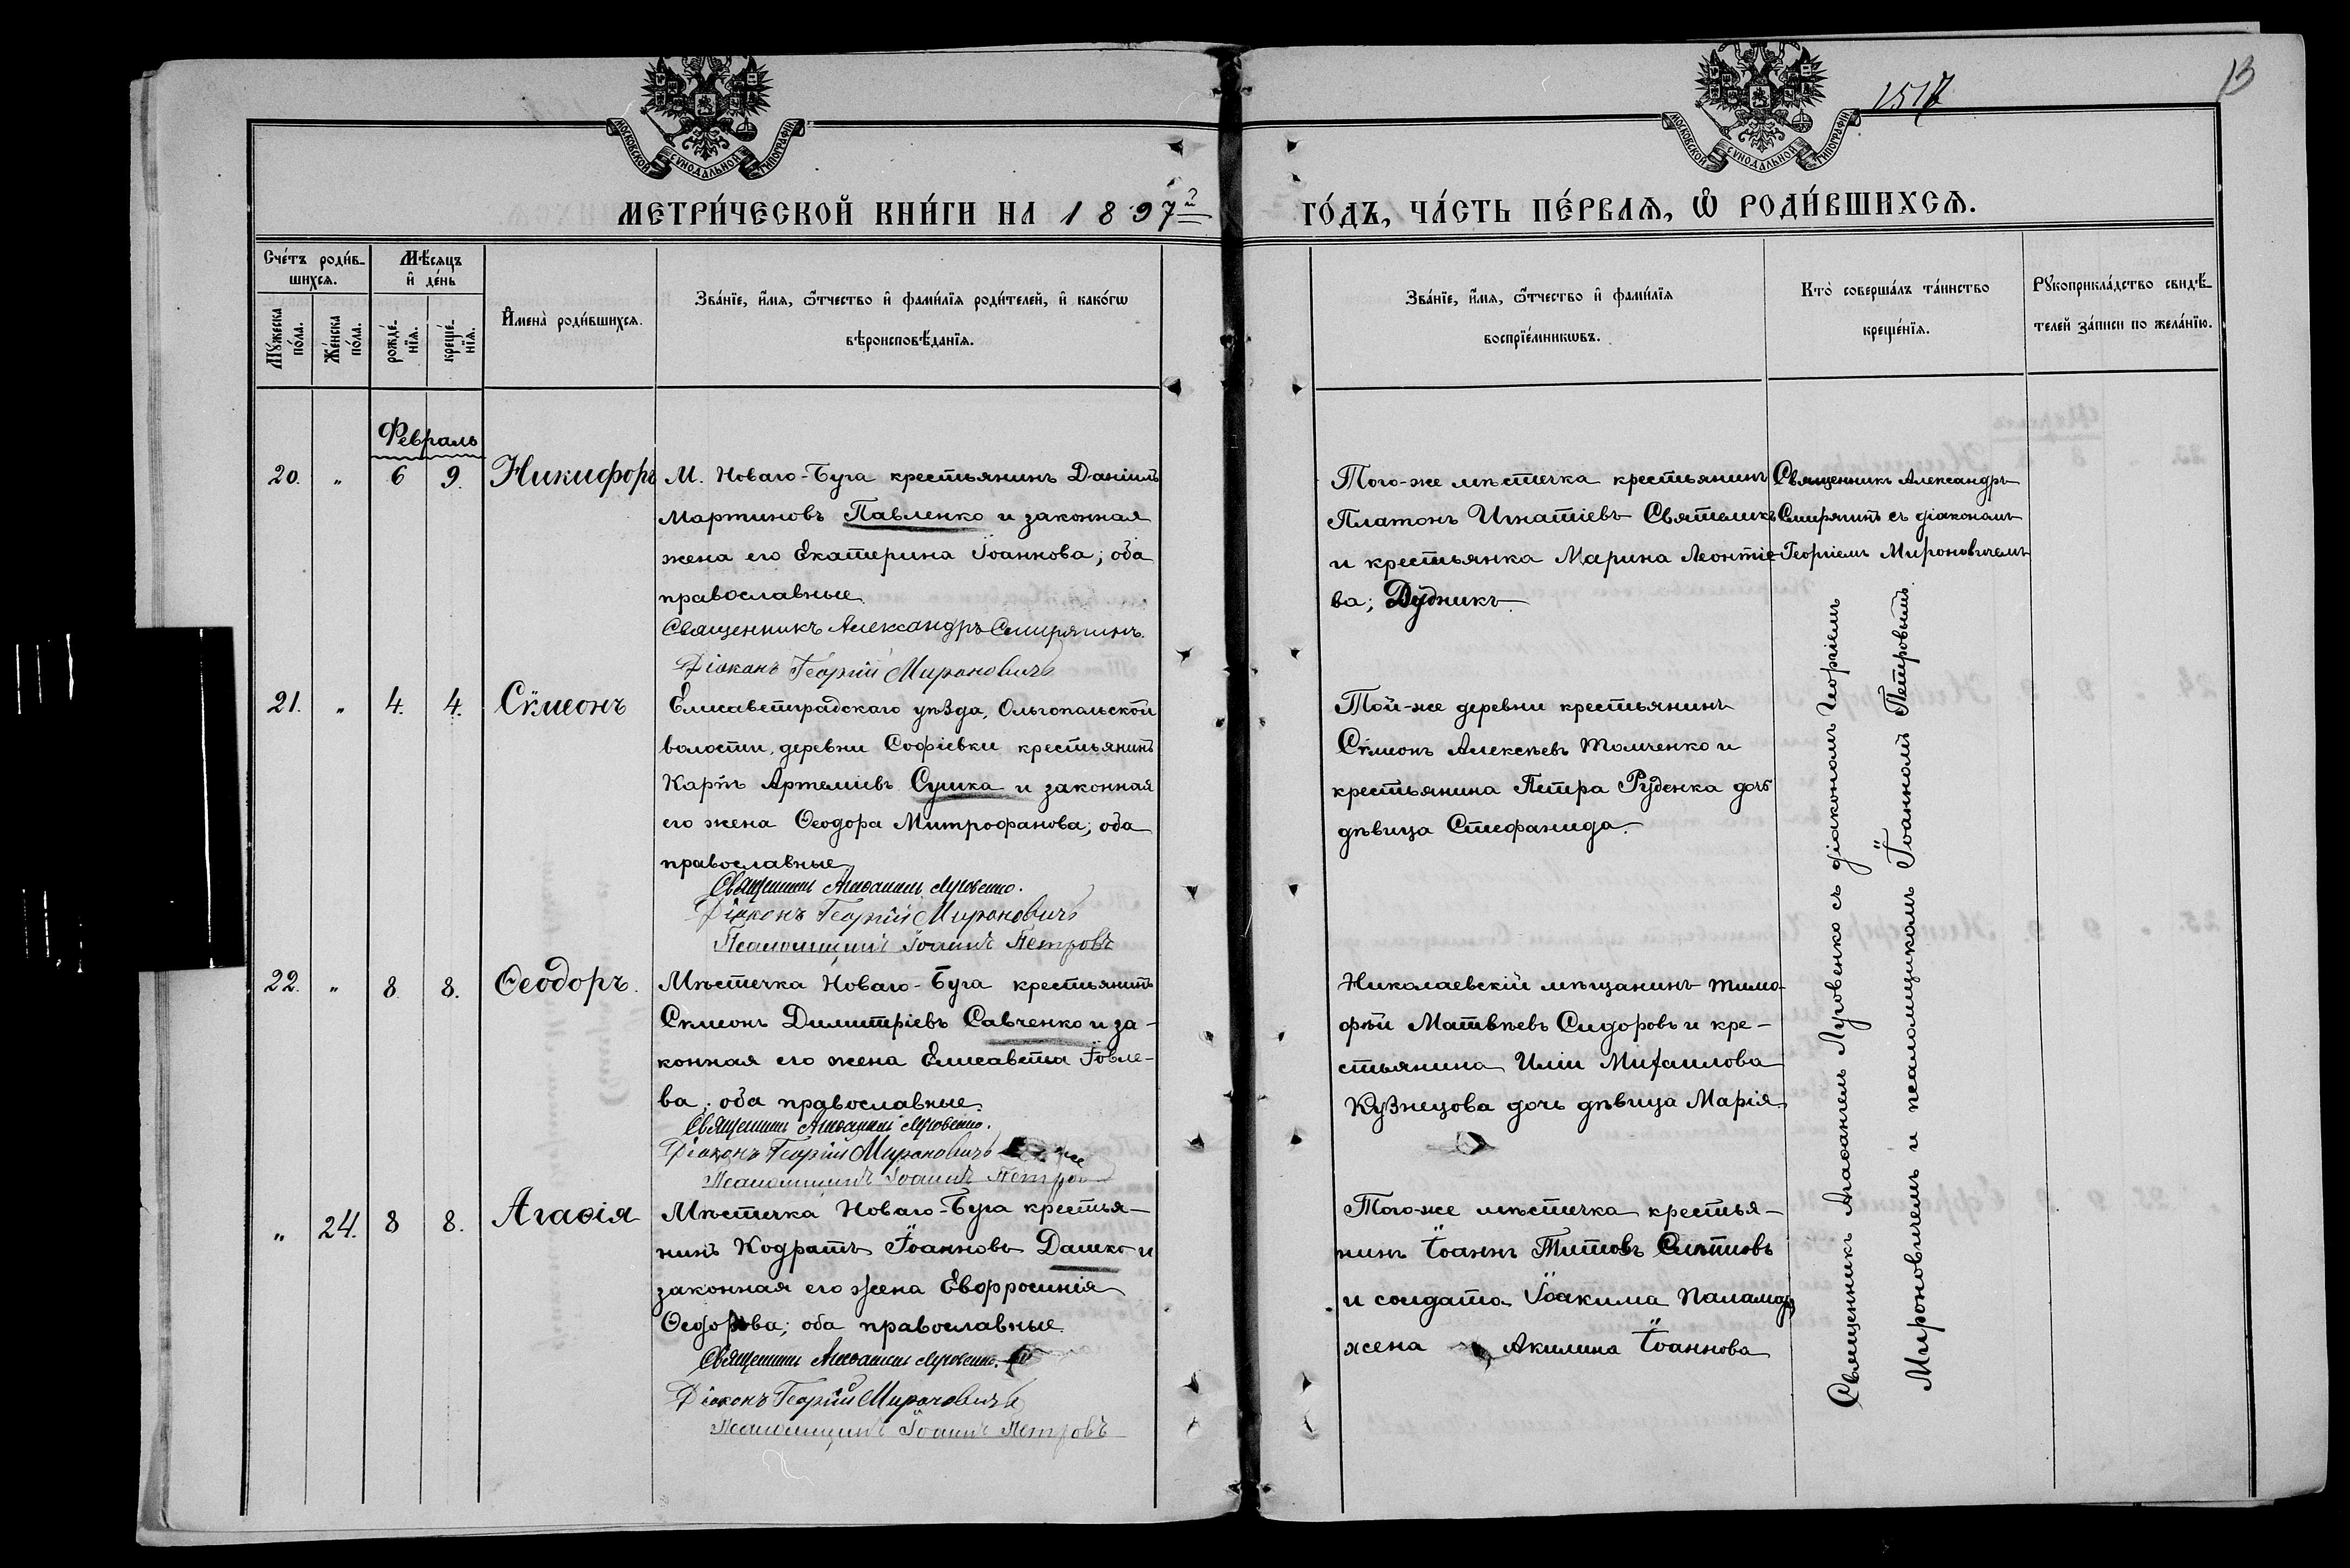 1517
13
МОСКОВСКОЙ СѴНОДАЛЬНОЙ ТИПОГРАФІИ
МОСКОВСКОЙ СѴНОДАЛЬНОЙ ТИПОГРАФІИ
МЕТРИ́ЧЕСКОЙ КНИ́ГИ НА 1897 г
ГО́ДЪ, ЧА́СТЬ ПЕ́РВАѦ, Ѡ РОДИ́ВШИХСѦ.
Сче́тъ роди́в-
шихсѧ.
Мꙋ́жеска по́ла.
Же́нска по́ла.
Мѣ́сѧцъ
и҆ де́нь
рожде́-
нїѧ.
креще́-
нїѧ.
И҆мена̀ роди́вшихсѧ.
Зва́нїе, и҆́мѧ, ѻ҆́тчество и҆ фами́лїѧ роди́телей, и҆ како́гѡ
вѣроисповѣ́данїѧ.
Зва́нїе, и҆́мѧ, ѻ҆́тчество и҆ фами́лїѧ
воспрїе́мникѡвъ.
Кто̀ соверша́лъ та́инство
креще́нїѧ.
Рꙋкоприкла́дство свидѣ́-
телей за́писи по жела́нїю.
Февраль
20. " 6 9. Никифоръ
М. Новаго-Буга крестьянинъ Даніилъ
Мартиновъ Павленко и законная
жена его Екатерина Іоаннова; оба
православные
Священникъ Александръ Смирягинъ.
Діаконъ Георгій Мироновичъ
Того-же мѣстечка крестьянинъ
Платонъ Игнатіевъ Святеликъ
и крестьянка Марина Леонтіе-
ва; Дудникъ
Священникъ Александръ
Смирягинъ съ діакономъ
Георгіемъ Мироновичемъ
21. " 4. 4. Сѵмеонъ
Елисаветградскаго уѣзда, Ольгопольской
волости, деревни Софіевки крестьянинъ
Карпъ Артеміевъ Сушка и законная
его жена Ѳеодора Митрофанова; оба
православные
Священникъ Агаѳангелъ Луговенко.
Діаконъ Георгій Мироновичъ
Псаломщикъ Іоаннъ Петровъ
Той-же деревни крестьянинъ
Сѵмеонъ Алексѣевъ Томченко и
крестьянина Петра Руденка дочь
дѣвица Стефанида.
22. " 8. 8. Ѳеодоръ.
Мѣстечка Новаго-Буга крестьянинъ
Сѵмеонъ Димитріевъ Савченко и за-
конная его жена Елисавета Іовле-
ва; оба православные.
Священникъ Агаѳангелъ Луговенко.
Діаконъ Георгій Мироновичъ
Псаломщикъ Іоаннъ Петров
Николаевскій мѣщанинъ Тимо-
фѣй Матвѣевъ Сидоровъ и кре-
стьянина Иліи Михаилова
Кузнецова дочь дѣвица Марія.
" 24. 8 8. Агаѳія
Мѣстечка Новаго-Буга крестья-
нинъ Кодратъ Іоанновъ Дашко и
законная его жена Евфросинія
Ѳеодорова; оба православные.
Священникъ Агаѳангелъ Луговенко.
Діаконъ Георгій Мироновичъ
Псаломщикъ Іоаннъ Петровъ
Того-же мѣстечка крестья-
нинъ Іоаннъ Титовъ
и солдата Іоакима Паламаръ
жена Акилина Іоаннова
Священникъ Агаѳангелъ Луговенко съ діакономъ Георгіемъ
Мироновичемъ и псаломщикомъ Іоанномъ Петровымъ